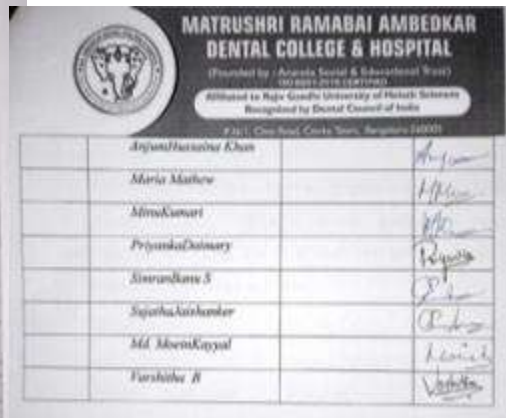 MATRUSHRI RAMABAI AMBEDKAR
DENTAL COLLEGE & HOSPITAL
(Founded by : Ananda Social & Educational Trust)
ISO 9001:2015 CERTIFIED
Affiliated to Rajiv Gandhi University of Health Sciences
Recognised by Dental Council of India
Cline Road, Cooke Town, Bangalore 560005
AnjumHussaina Khan
Maria Mathew
MinuKumari
PriyankaDaimary
SimranBanu S
SujathaJaishanker
Md. MoeinKayyal
Varshitha B